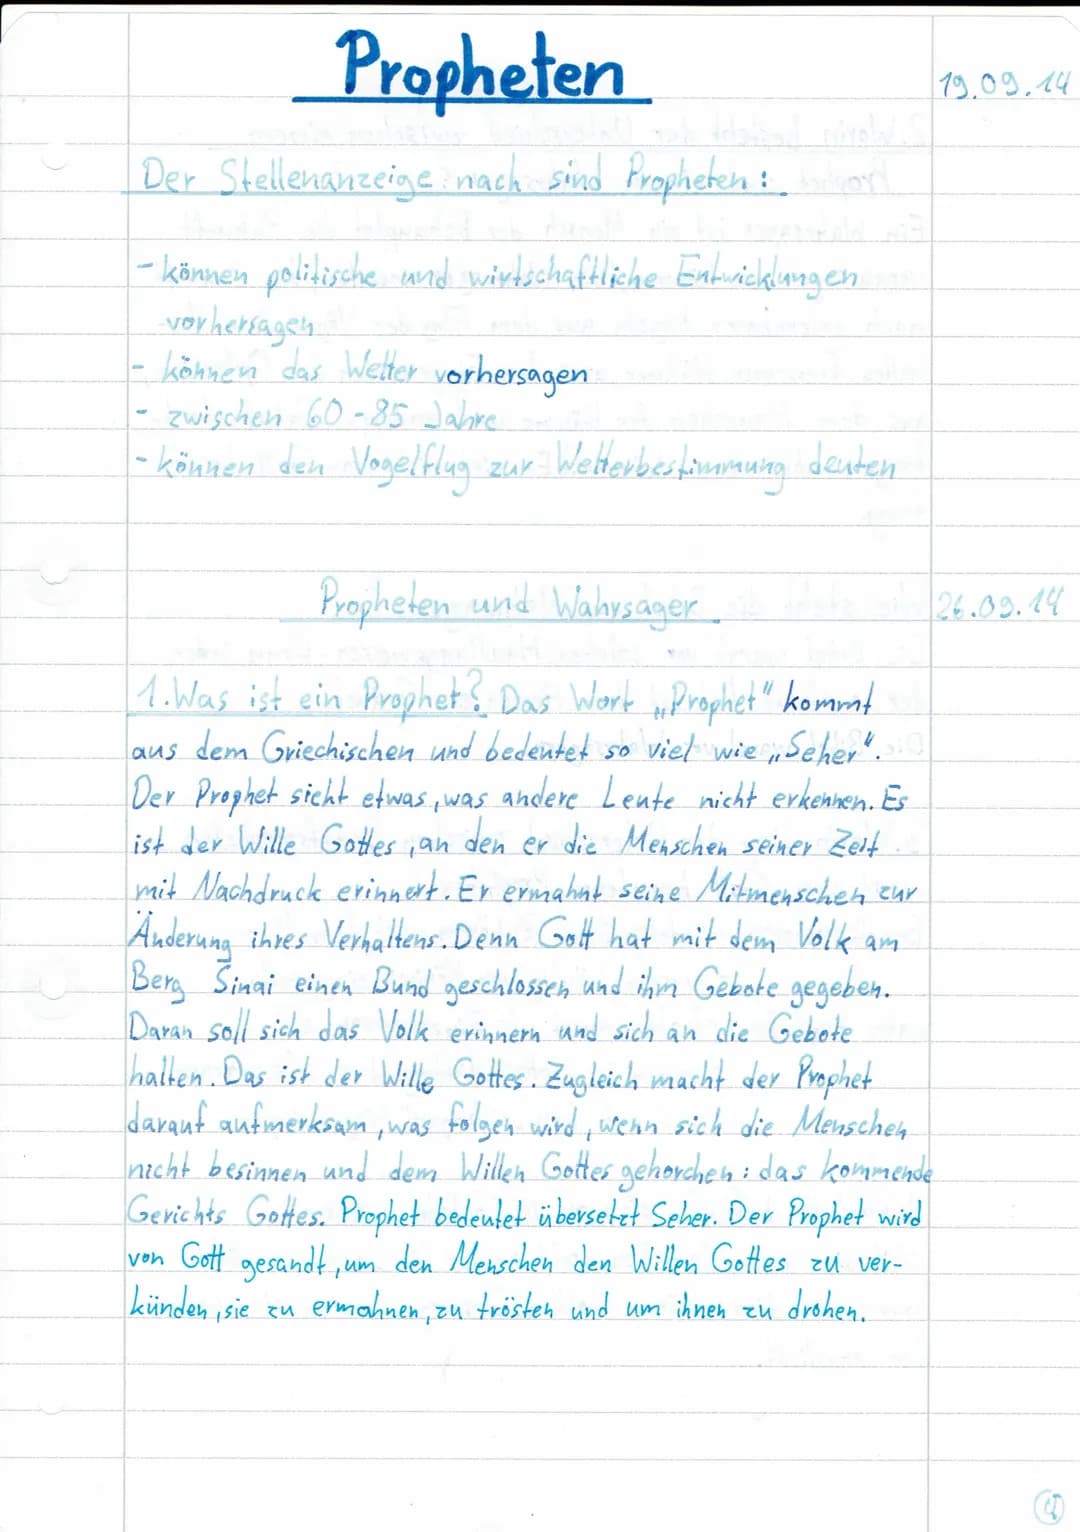 Propheten
19.09.14
Der Stellenanzeige nach sind Propheten:
- können politische und wirtschaftliche Entwicklungen
vorhersagen
- können das Wetter vorhersagen
- zwischen 60-85 Jahre
- können den Vogelflug zur Wetterbestimmung deuten
Propheten und Wahrsager
26.09.14
1. Was ist ein Prophet? Das Wort „Prophet" kommt
aus dem Griechischen und bedeutet so viel wie „Seher".
Der Prophet sieht etwas, was andere Leute nicht erkennen. Es
ist der Wille Gottes, an den er die Menschen seiner Zeit
mit Nachdruck erinnert. Er ermahnt seine Mitmenschen zur
Änderung ihres Verhaltens. Denn Gott hat mit dem Volk am
Berg Sinai einen Bund geschlossen und ihm Gebote gegeben.
Daran soll sich das Volk erinnern und sich an die Gebote
halten. Das ist der Wille Gottes. Zugleich macht der Prophet
darauf aufmerksam, was folgen wird, wenn sich die Menschen
nicht besinnen und dem Willen Gottes gehorchen: das kommende
Gerichts Gottes. Prophet bedeutet übersetzt Seher. Der Prophet wird
von Gott gesandt, um den Menschen den Willen Gottes zu ver-
künden, sie zu ermahnen, zu trösten und um ihnen zu drohen.